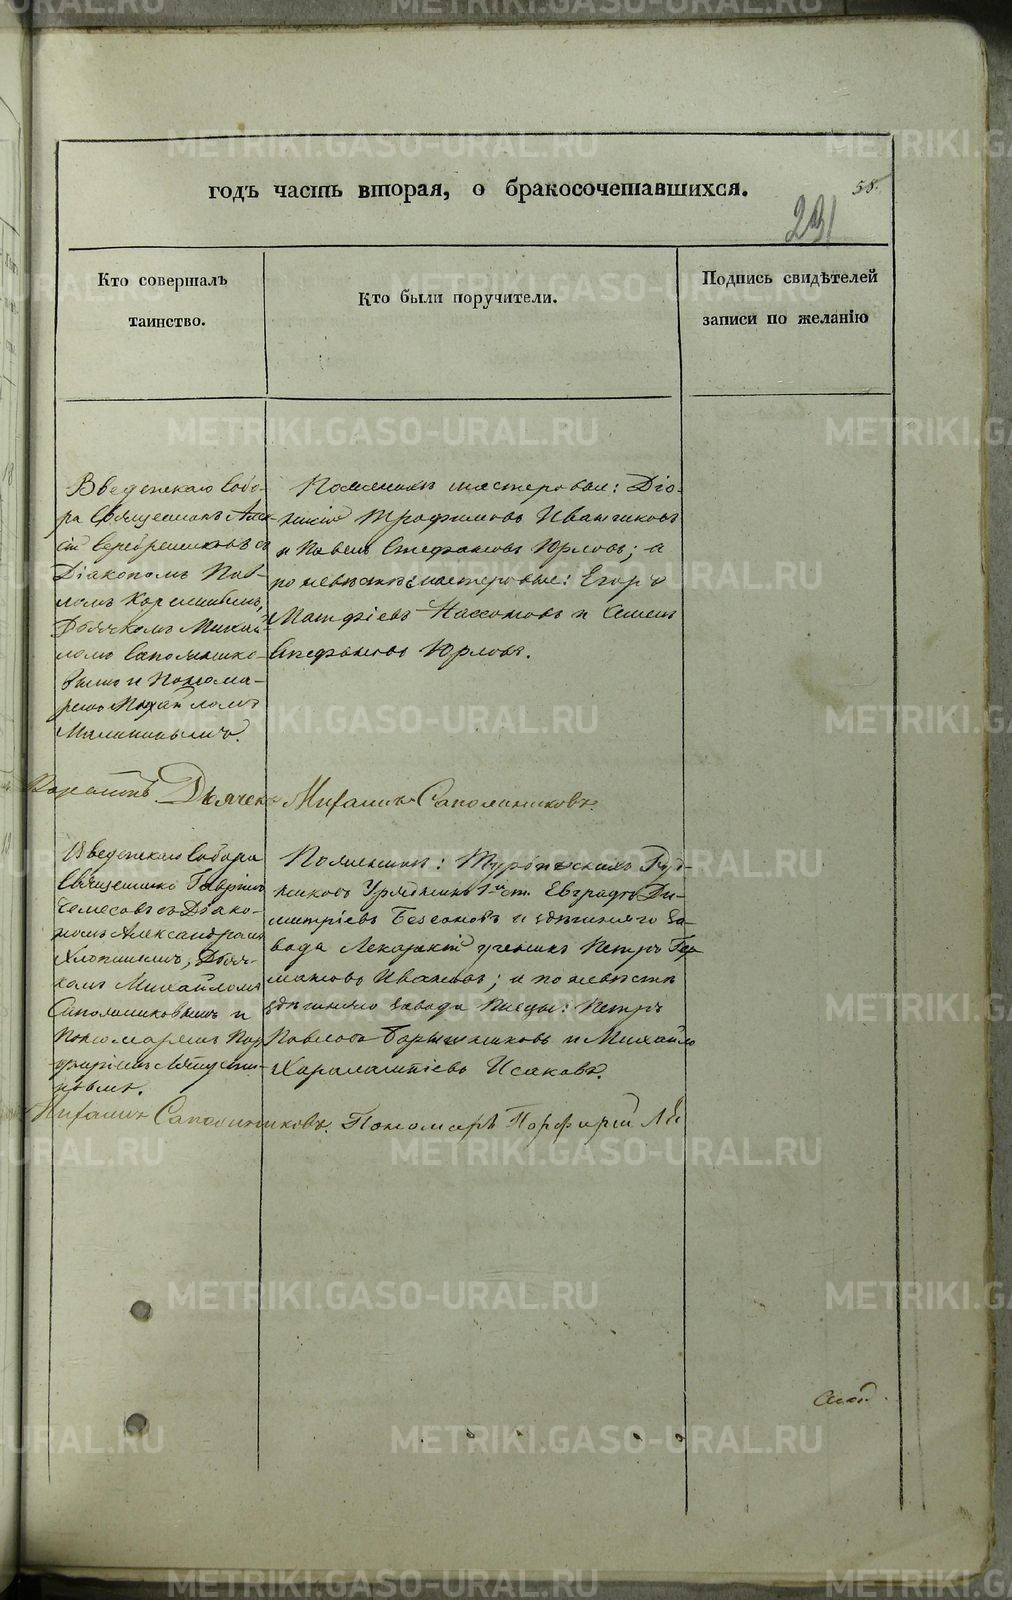 годъ часть вторая, о бракосочетавшихся.
58.
291
Кто совершалъ
таинство.
Кто были поручители.
Подпись свидѣтелей
записи по желанію
Введенскаго Собо-
ра Священникъ Алек-
сій Серебренниковъ съ
Діакономъ Пав-
ломъ
Дьячкомъ Михай-
ломъ Сапожнико-
вымъ и Понома-
ремъ Михайломъ
По женихѣ мастеровые: Діо-
нисій Трофимовъ Иванчиковъ
и Павелъ Стефановъ Юрловъ; а
по невѣстѣ мастеровые: Егоръ
Матфіевъ и Семенъ
Стефановъ Юрловъ.
Дьячекъ Михаилъ Сапожниковъ.
Введенскаго Собора
Священникъ Гавріилъ
съ Діако-
номъ Александромъ
Дьяч-
комъ Михайломъ
Сапожниковымъ и
Пономаремъ Пор-
фиріемъ
По женихѣ: Турьинскихъ Руд-
никовъ Урядникъ 1й ст. Евграфъ Ди-
митріевъ Безсоновъ и здѣшняго За-
вода Лекарскій ученикъ Петръ Гер-
мановъ Ивановъ; и по невѣстѣ
здѣшняго завода Писцы: Петръ
Павловъ и Михайло
Харалампіевъ Исаковъ.
Михаилъ Сапожниковъ. Пономарь Порфирій
METRIKI.GASO-URAL.RU